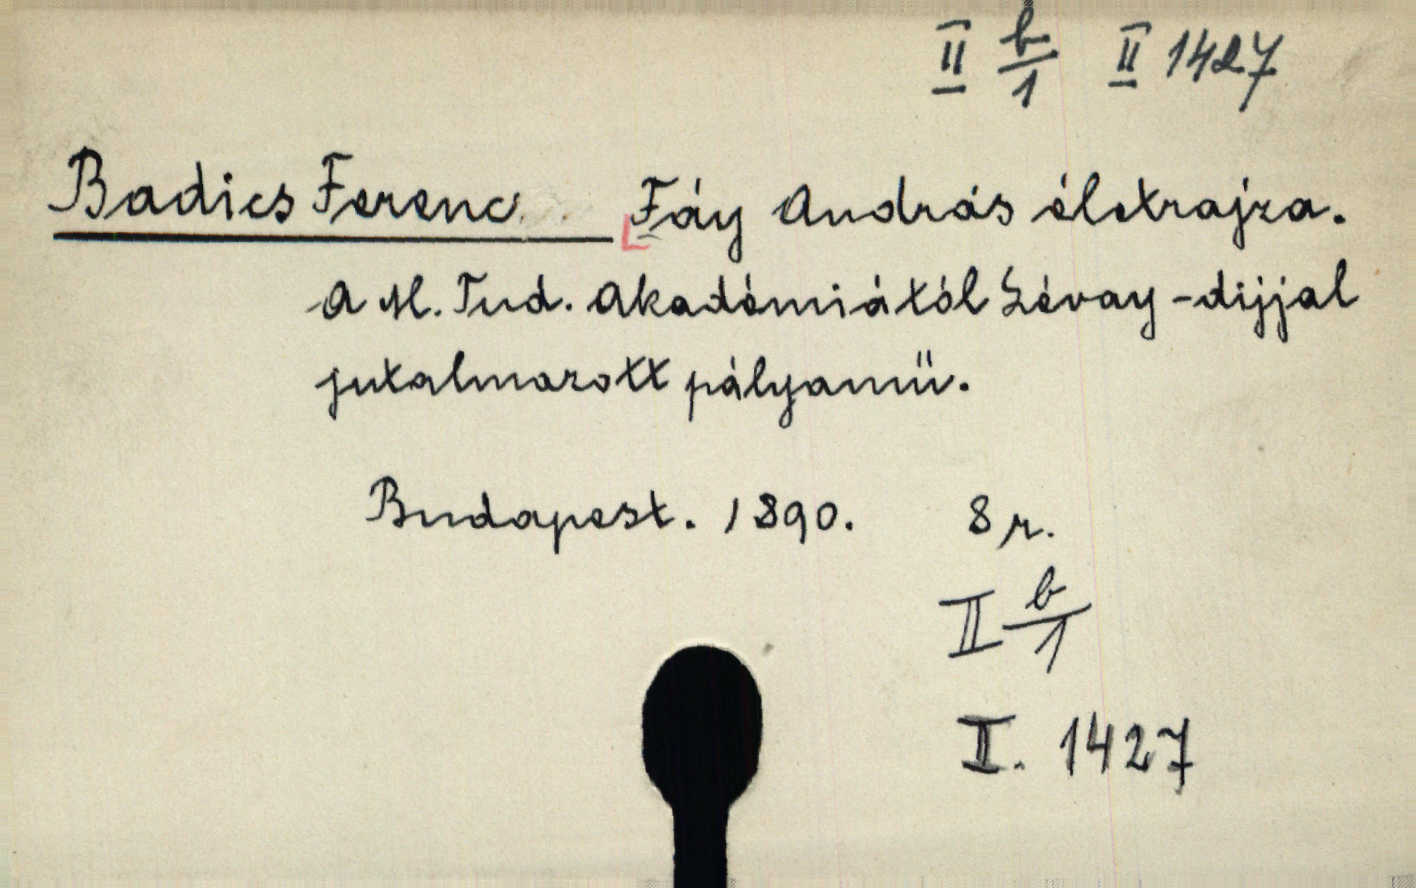 II b/1 II 1427
Badics Ferenc Fáy András életrajza.
A M. Tud. Akadémiától Lévay-dijjal
jutalmazott pályamü.
Budapest. 1890. 8 r.
II b/1
II. 1427